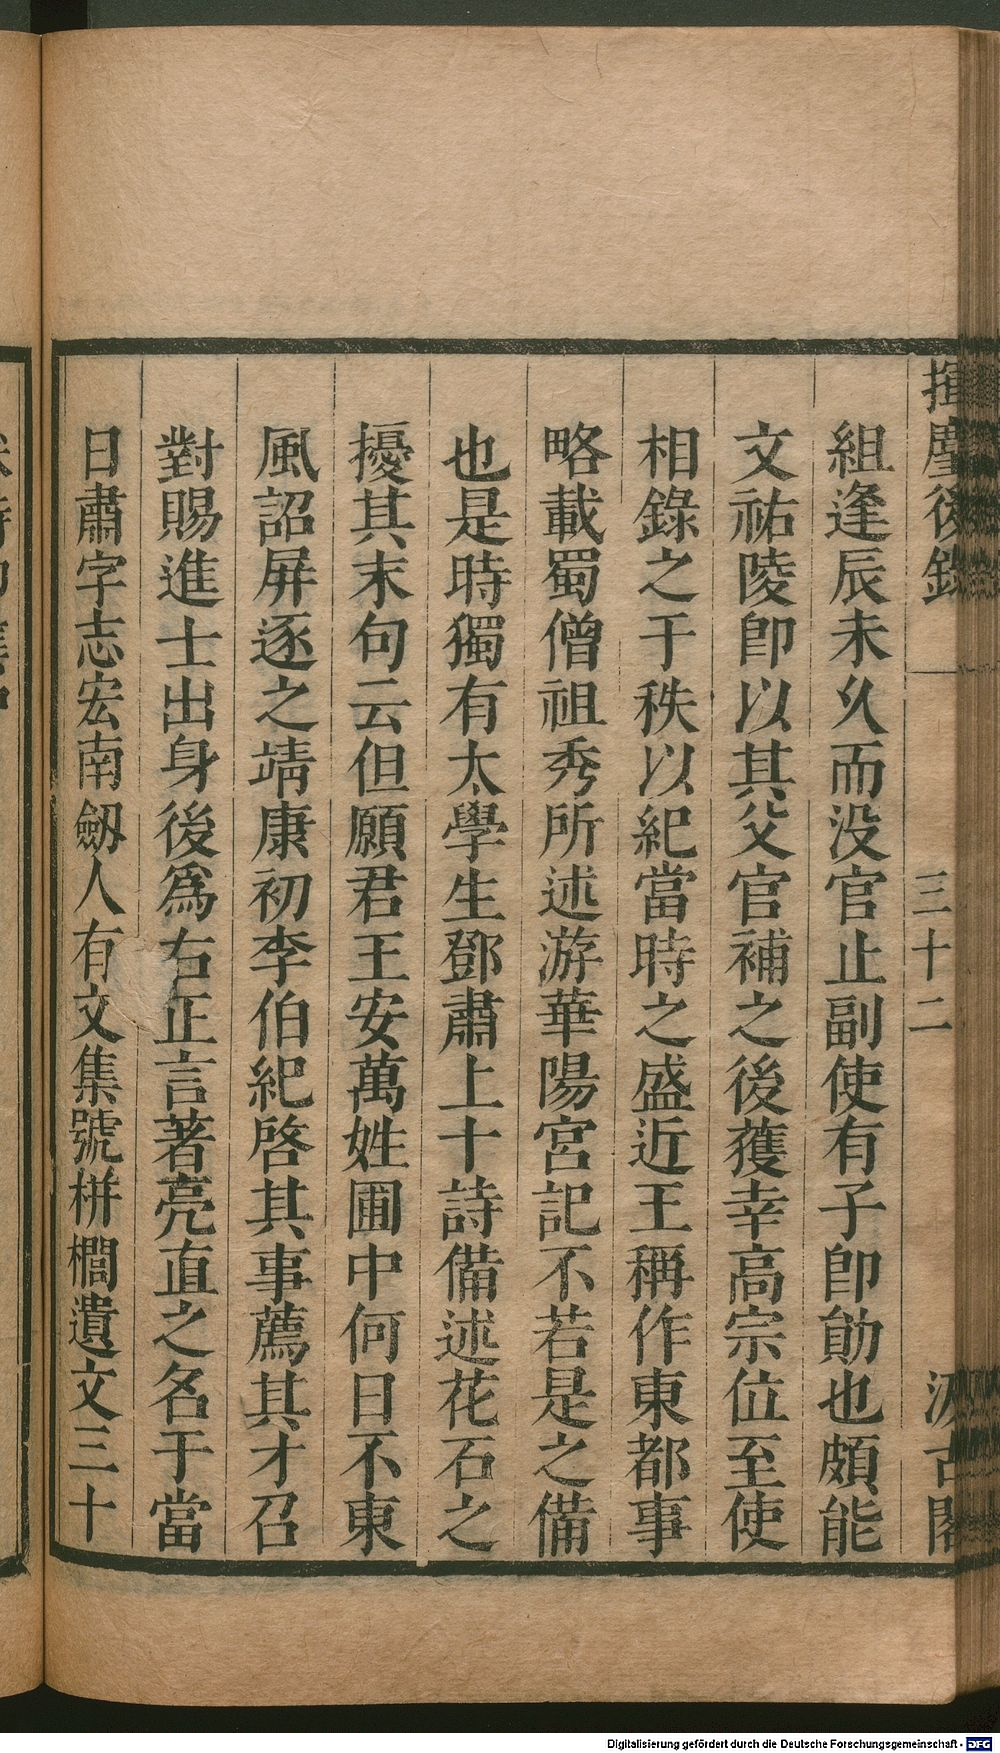 揮麈後錄 三十二 汲古閣
組逢辰未久而没官止副使有子卽勛也頗能
文祐陵卽以其父官補之後獲幸高宗位至使
相錄之于秩以紀當時之盛近王稱作東都事
略載蜀僧祖秀所述游華陽宮記不若是之備
也是時獨有太學生鄧肅上十詩備述花石之
擾其末句云但願君王安萬姓圃中何日不東
風詔屏逐之靖康初李伯紀啓其事薦其才召
對賜進士出身後爲右正言著亮直之名于當
日肅字志宏南劔人有文集號栟櫚遺文三十
Digitalisierung gefördert durch die Deutsche Forschungsgemeinschaft - DFG